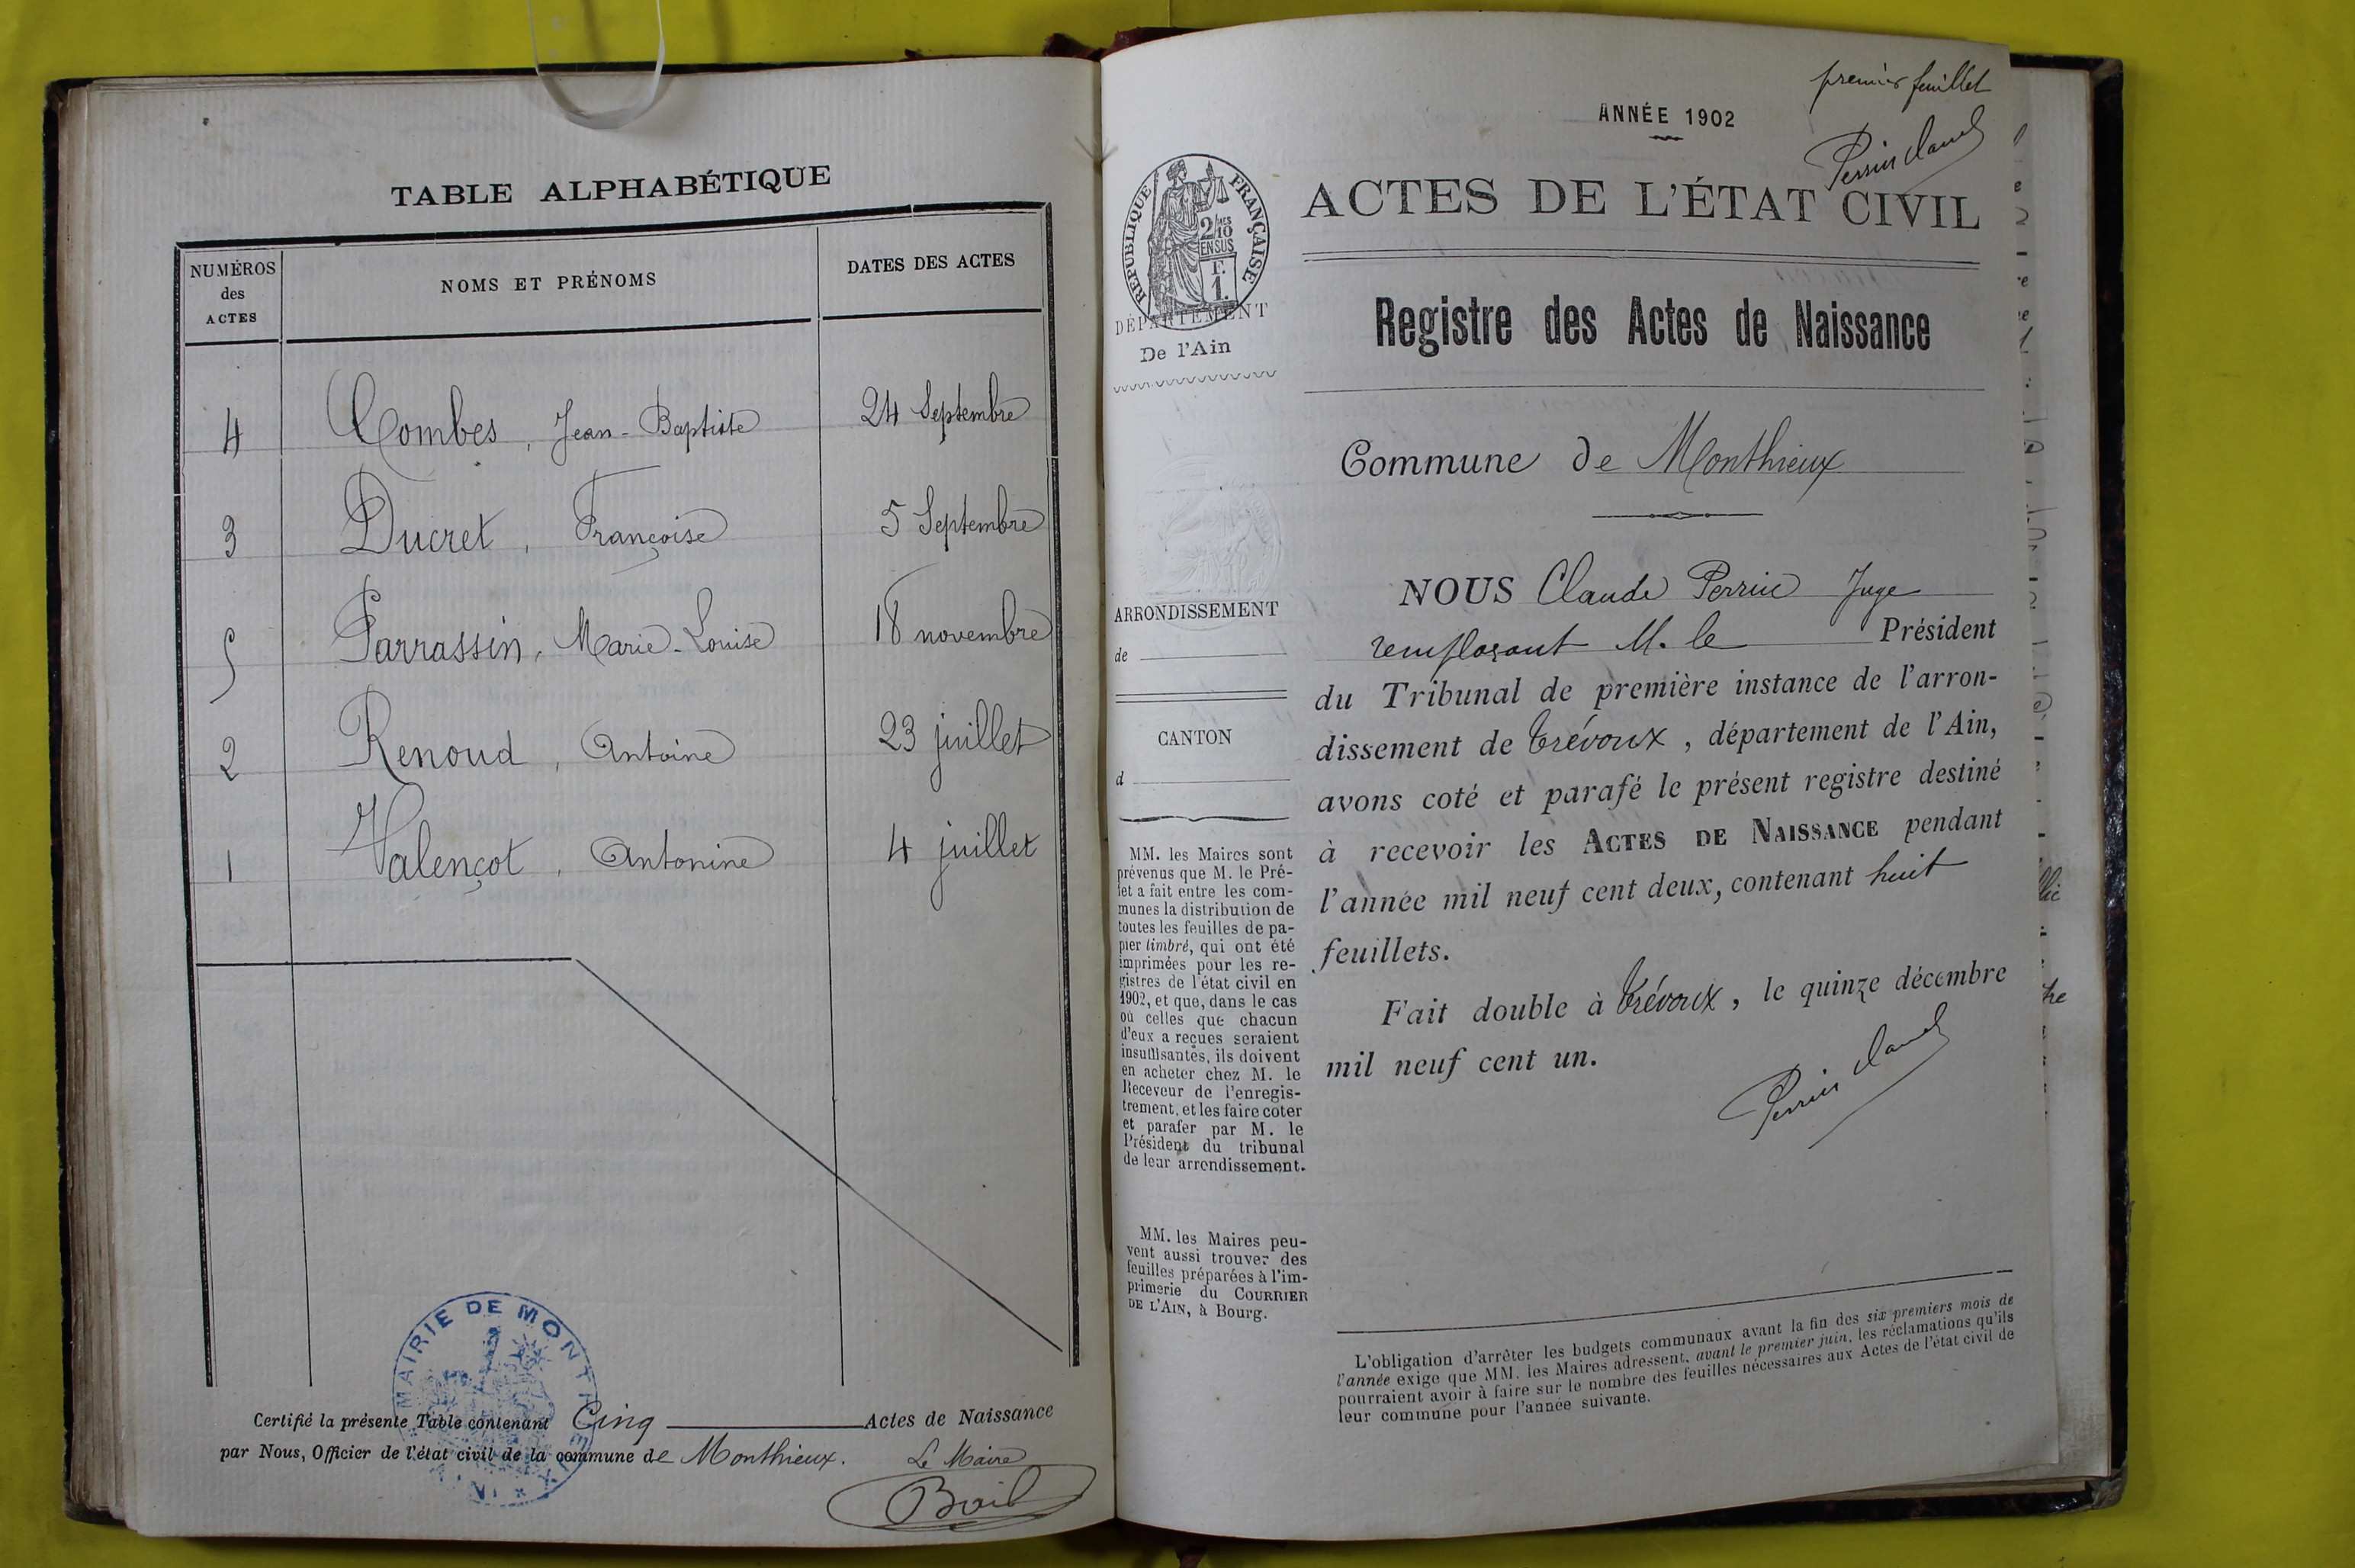 TABLE ALPHABÉTIQUE
NUMÉROS
des
ACTES
NOMS ET PRÉNOMS
DATES DES ACTES
4 Combes, Jean-Baptiste 24 Septembre
3 Ducret, Françoise 5 Septembre
5 Parrassin, Marie-Louise 18 novembre
2 Renoud, Antoine 23 juillet
1 Valençot, Antonine 4 juillet
MAIRIE DE MONTHIEUX
Certifié la présente Table contenant Cinq Actes de Naissance
par Nous, Officier de l'état civil de la commune de Monthieux.
Le Maire
premier feuillet
Perrin Claude
ANNÉE 1902
ACTES DE L'ÉTAT CIVIL
RÉPUBLIQUE FRANÇAISE
2/10
EN SUS
F.
1.
DÉPARTEMENT
De l'Ain
Registre des Actes de Naissance
Commune de Monthieux
ARRONDISSEMENT
de
CANTON
d
MM. les Maires sont
prévenus que M. le Pré-
fet a fait entre les com-
munes la distribution de
toutes les feuilles de pa-
pier timbré, qui ont été
imprimées pour les re-
gistres de l'état civil en
1902, et que, dans le cas
où celles que chacun
d'eux a reçues seraient
insuffisantes, ils doivent
en acheter chez M. le
Receveur de l'enregis-
trement, et les faire coter
et parafer par M. le
Président du tribunal
de leur arrondissement.
MM. les Maires peu-
vent aussi trouver des
feuilles préparées à l'im-
primerie du COURRIER
DE L'AIN, à Bourg.
NOUS Claude Perrin Juge
remplaçant M. le Président
du Tribunal de première instance de l'arron-
dissement de Trévoux, département de l'Ain,
avons coté et parafé le présent registre destiné
à recevoir les ACTES DE NAISSANCE pendant
l'année mil neuf cent deux, contenant huit
feuillets.
Fait double à Trévoux, le quinze décembre
mil neuf cent un.
Perrin Claude
L'obligation d'arrêter les budgets communaux avant la fin des six premiers mois de
l'année exige que MM. les Maires adressent, avant le premier juin, les réclamations qu'ils
pourraient avoir à faire sur le nombre des feuilles nécessaires aux Actes de l'état civil de
leur commune pour l'année suivante.